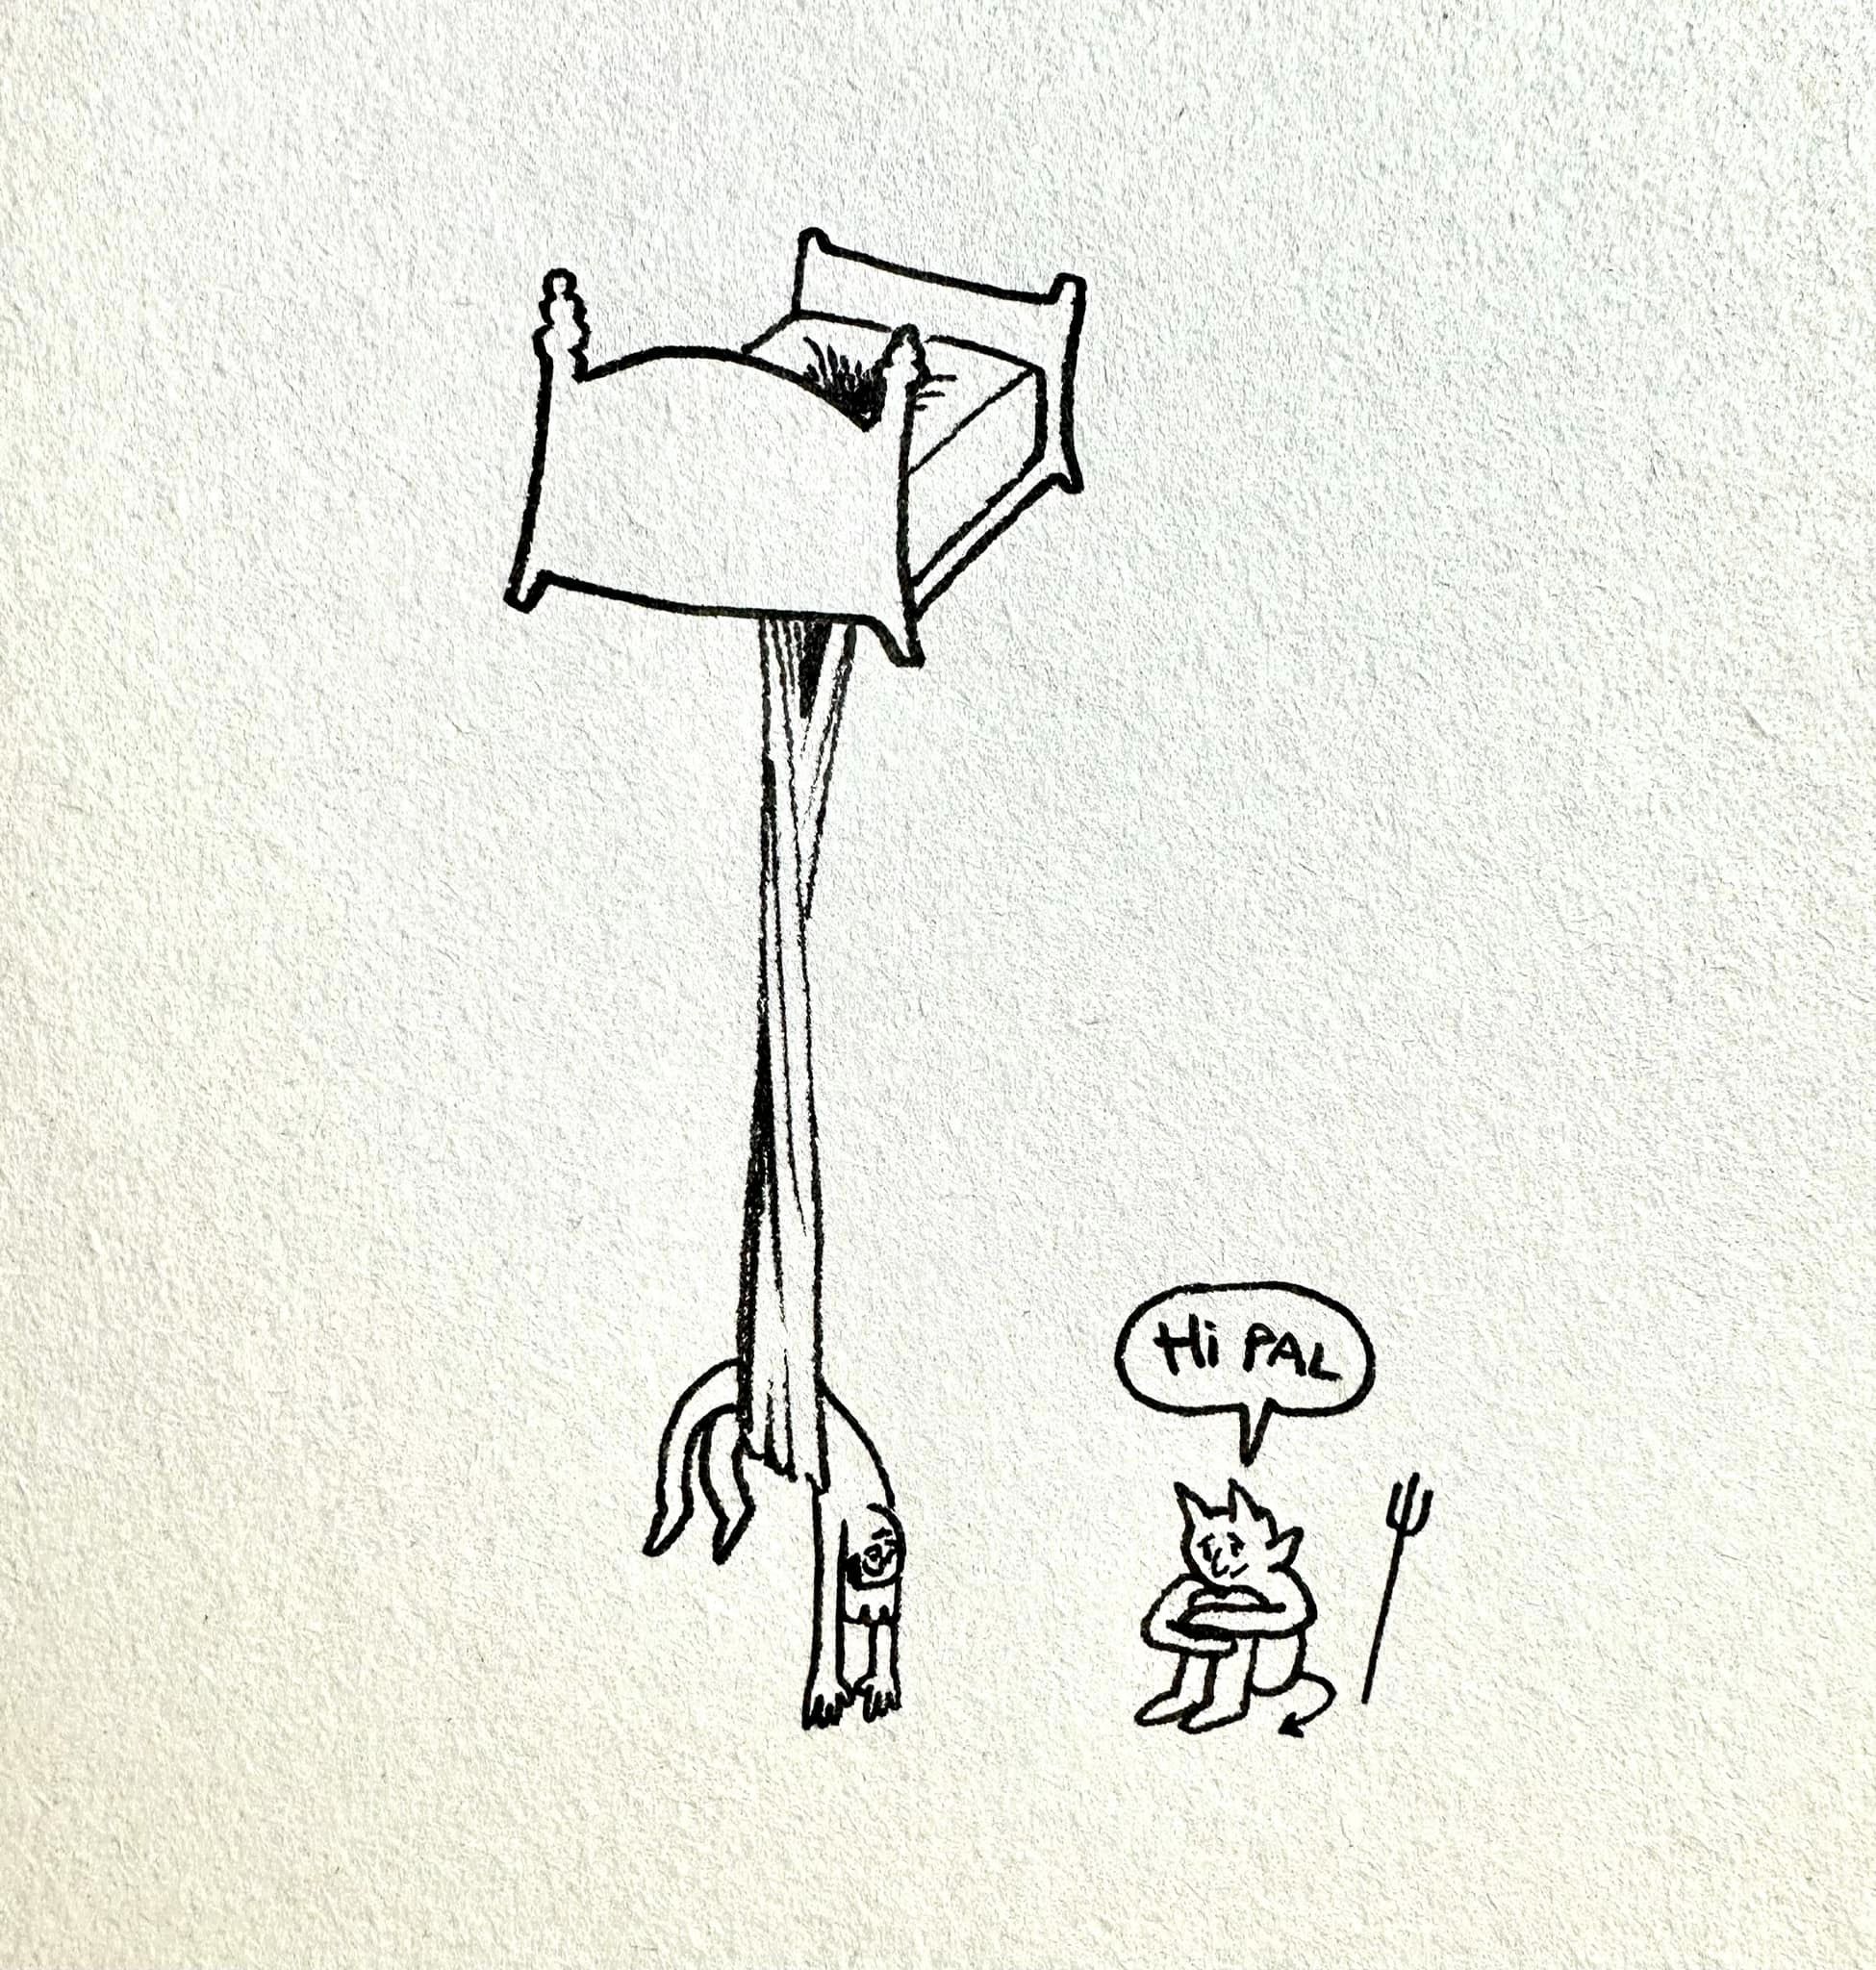 Hi PAL